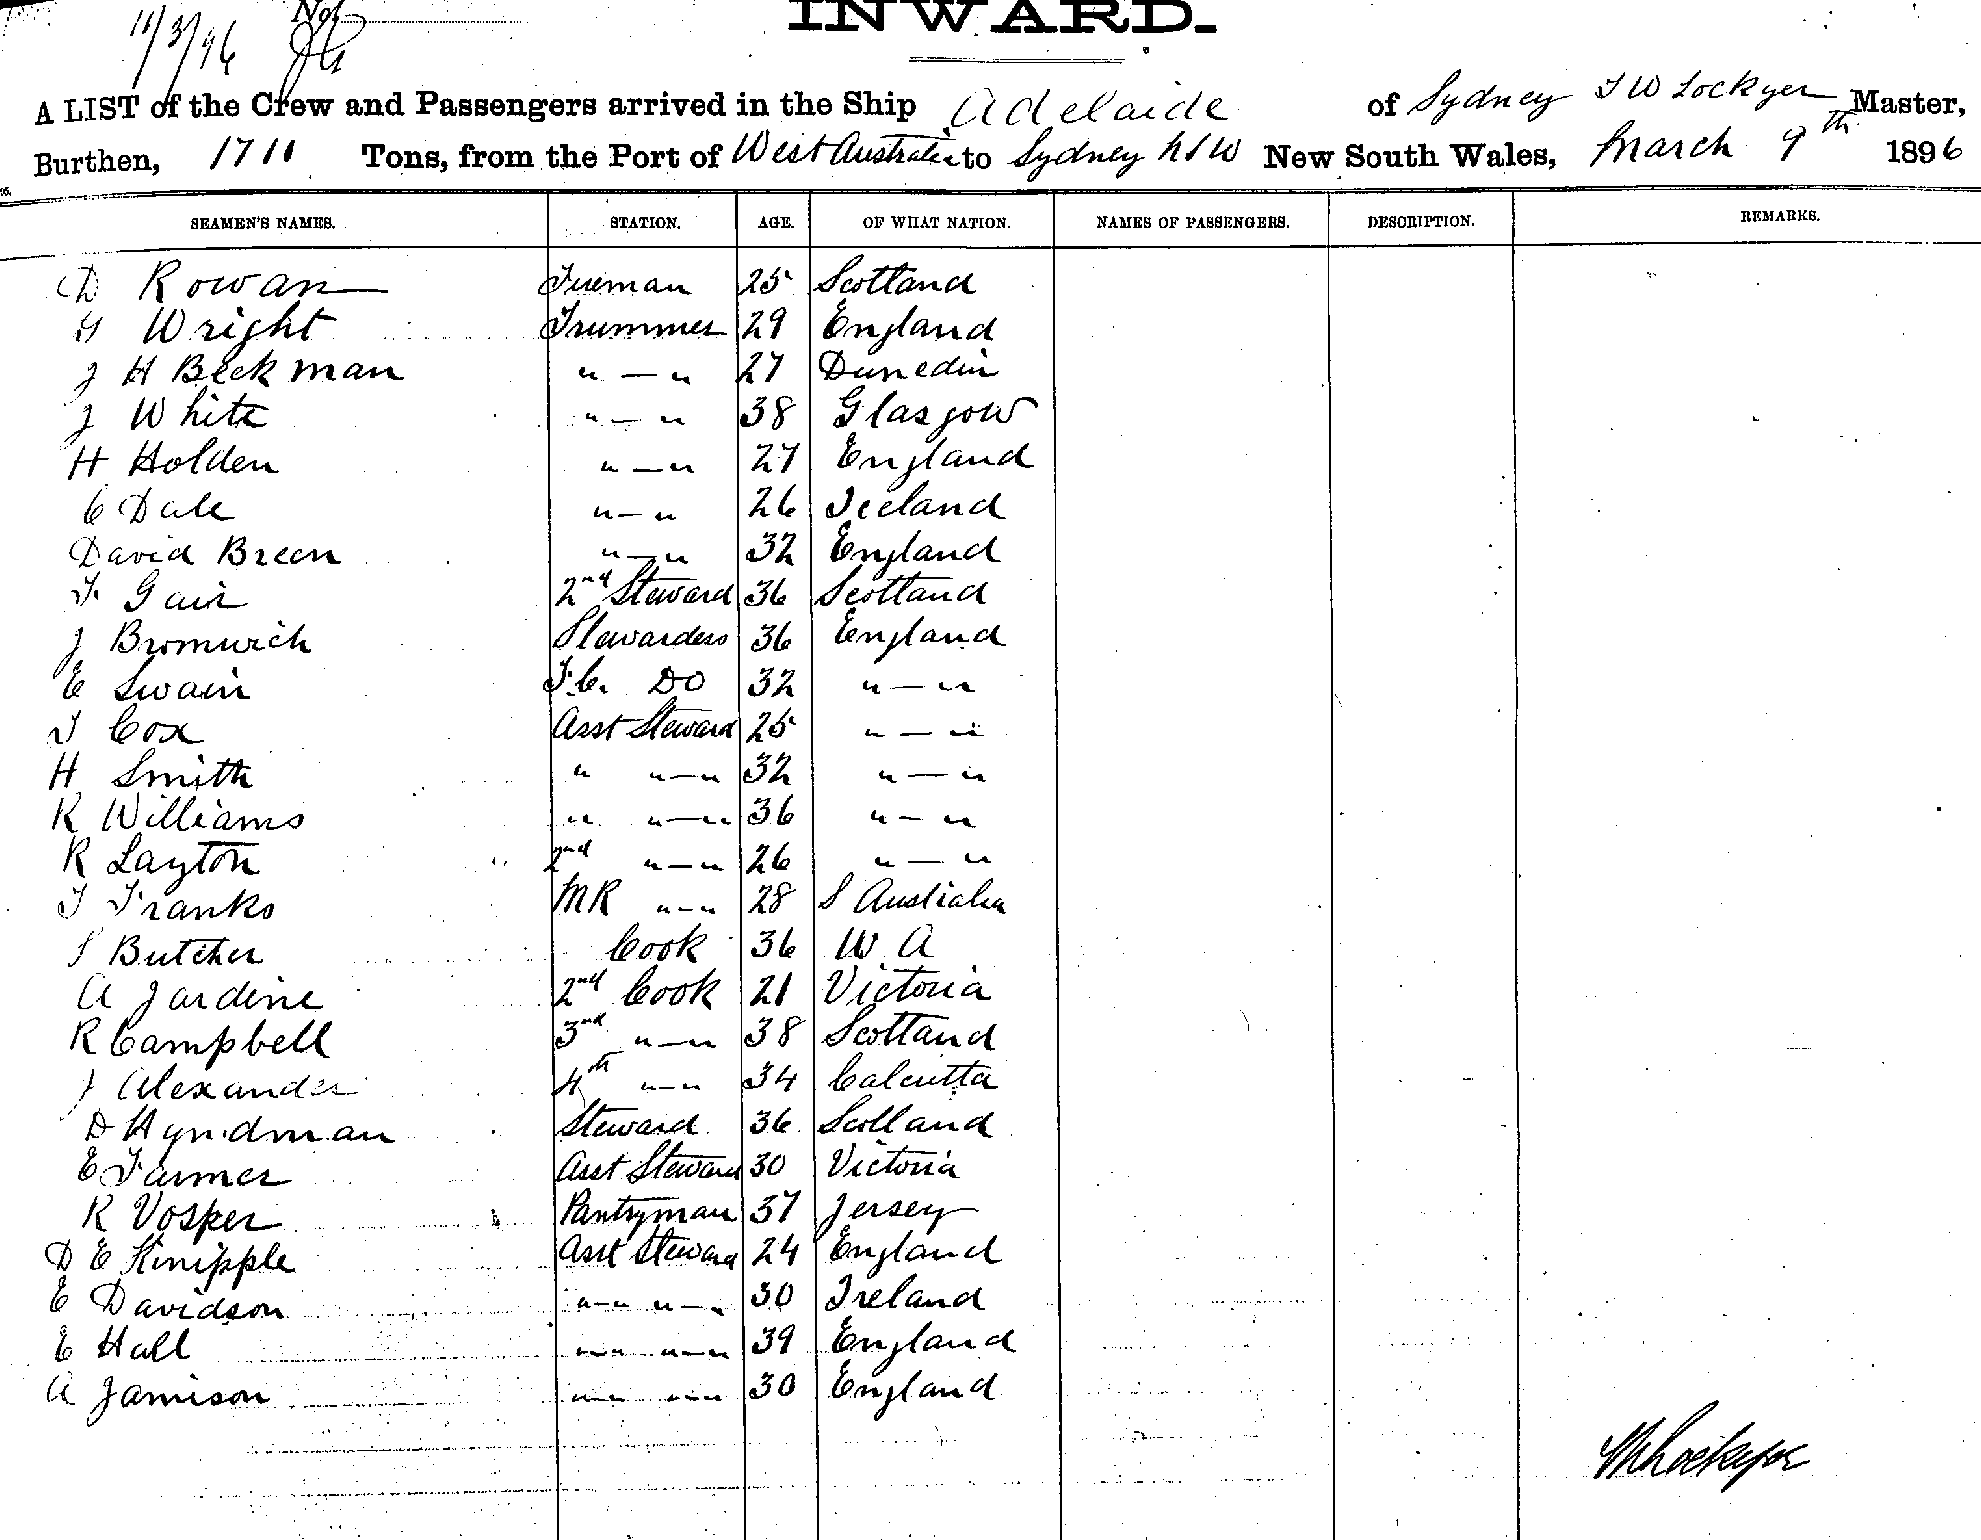 11/3/96 No.
INWARD.
A LIST of the Crew and Passengers arrived in the Ship Adelaide of Sydney T W Lockyer Master,
Burthen, 1711 Tons, from the Port of West Australia to Sydney NSW New South Wales, March 9th 1896
SEAMEN'S NAMES. STATION. AGE. OF WHAT NATION. NAMES OF PASSENGERS. DESCRIPTION. REMARKS.
D Rowan Fireman 25 Scotland
G Wright Trimmer 29 England
J H Beckman " — " 27 Dunedin
J White " — " 38 Glasgow
H Holden " — " 27 England
C Dale " — " 26 Iceland
David Breen " — " 32 England
F Gair 2nd Steward 36 Scotland
J Bromwich Stewardess 36 England
E Swain F.C. DO 32 " — "
T Cox Asst Steward 25 " — "
H Smith " " — " 32 " — "
R Williams " " — " 36 " — "
R Layton 2nd " — " 26 " — "
T Franks MR " — " 28 S Australia
S Butcher Cook 36 W A
A Jardine 2nd Cook 21 Victoria
R Campbell 3rd " — " 38 Scotland
J Alexander 4th " — " 34 Calcutta
D Hyndman Steward 36 Scotland
E Farmer Asst Steward 30 Victoria
R Vosper Pantryman 37 Jersey
D E Knipple Asst Steward 24 England
E Davidson " — " " — " 30 Ireland
E Hall " — " " — " 39 England
A Jamison " — " " — " 30 England